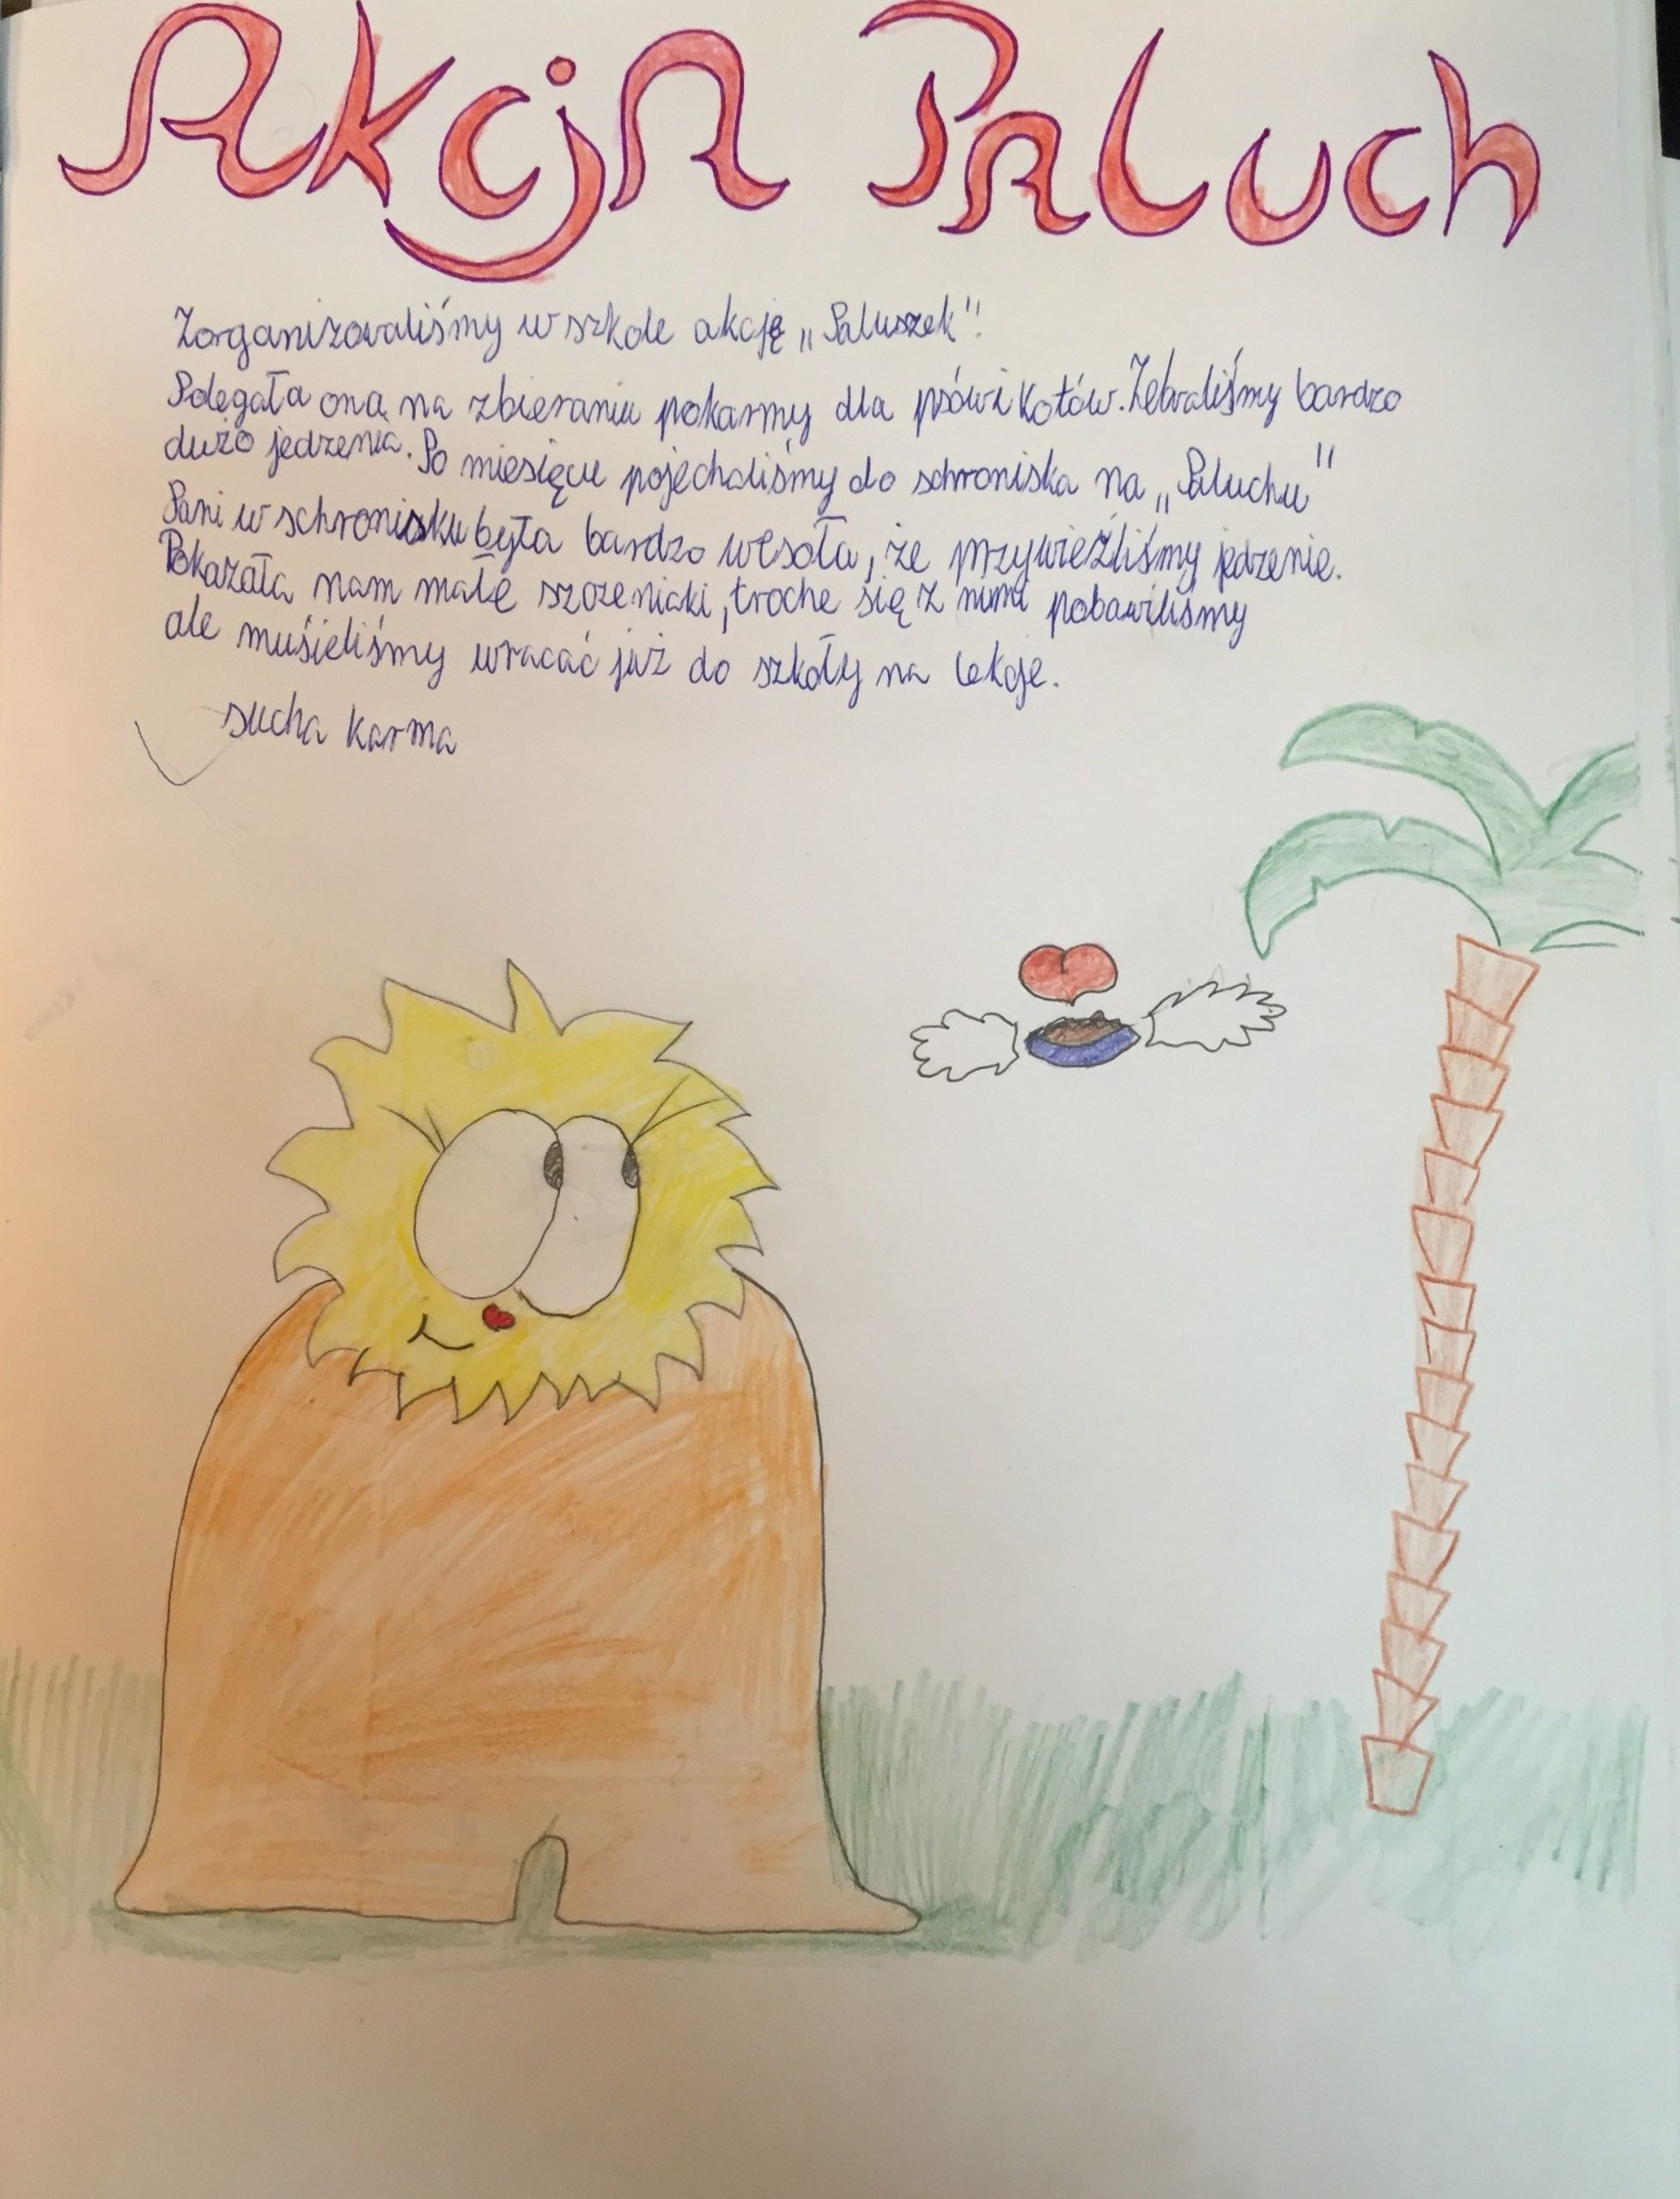 Akcja Paluch
Zorganizowaliśmy w szkole akcję „Paluszek"!
Polegała ona na zbieraniu pokarmy dla psów i kotów. Zebraliśmy bardzo
dużo jedzenia. Po miesiącu pojechaliśmy do schroniska na „Paluchu"
Pani w schronisku była bardzo wesoła, że przywieźliśmy jedzenie.
Pokazała nam małe szczeniaki, troche się z nimi pobawiliśmy
ale musieliśmy wracać już do szkoły na lekcje.
sucha karma